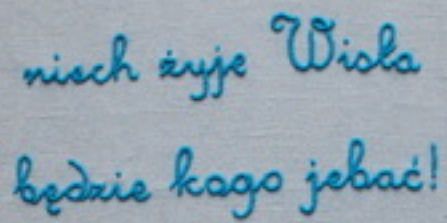 niech żyje Wisła
będzie kogo jebać!